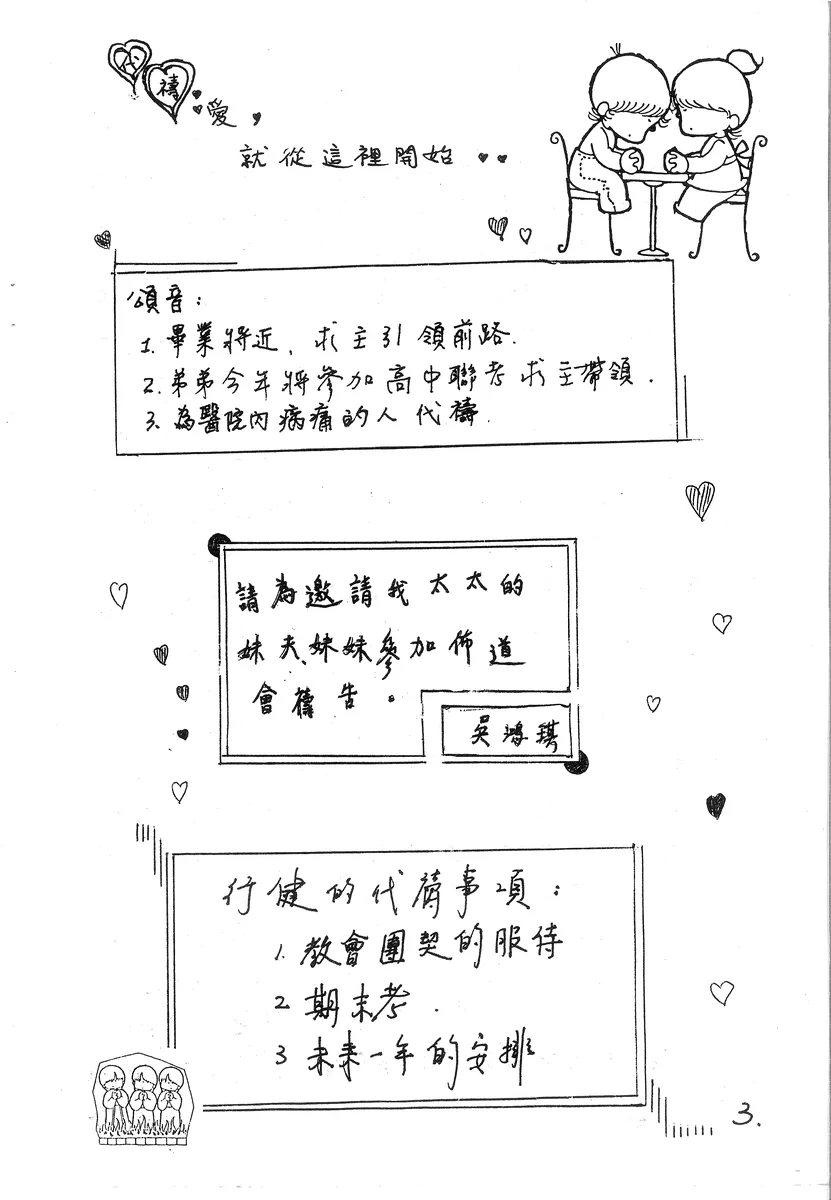 禱
愛,
就從這裡開始
頌音:
1. 畢業將近、求主引領前路.
2. 弟弟今年將參加高中聯考求主帶領.
3. 為醫院內病痛的人代禱.
請為邀請我太太的
妹夫、妹妹參加佈道
會禱告。
吳鴻琪
行健的代禱事項:
1. 教會團契的服侍
2 期末考.
3 未來一年的安排
3.